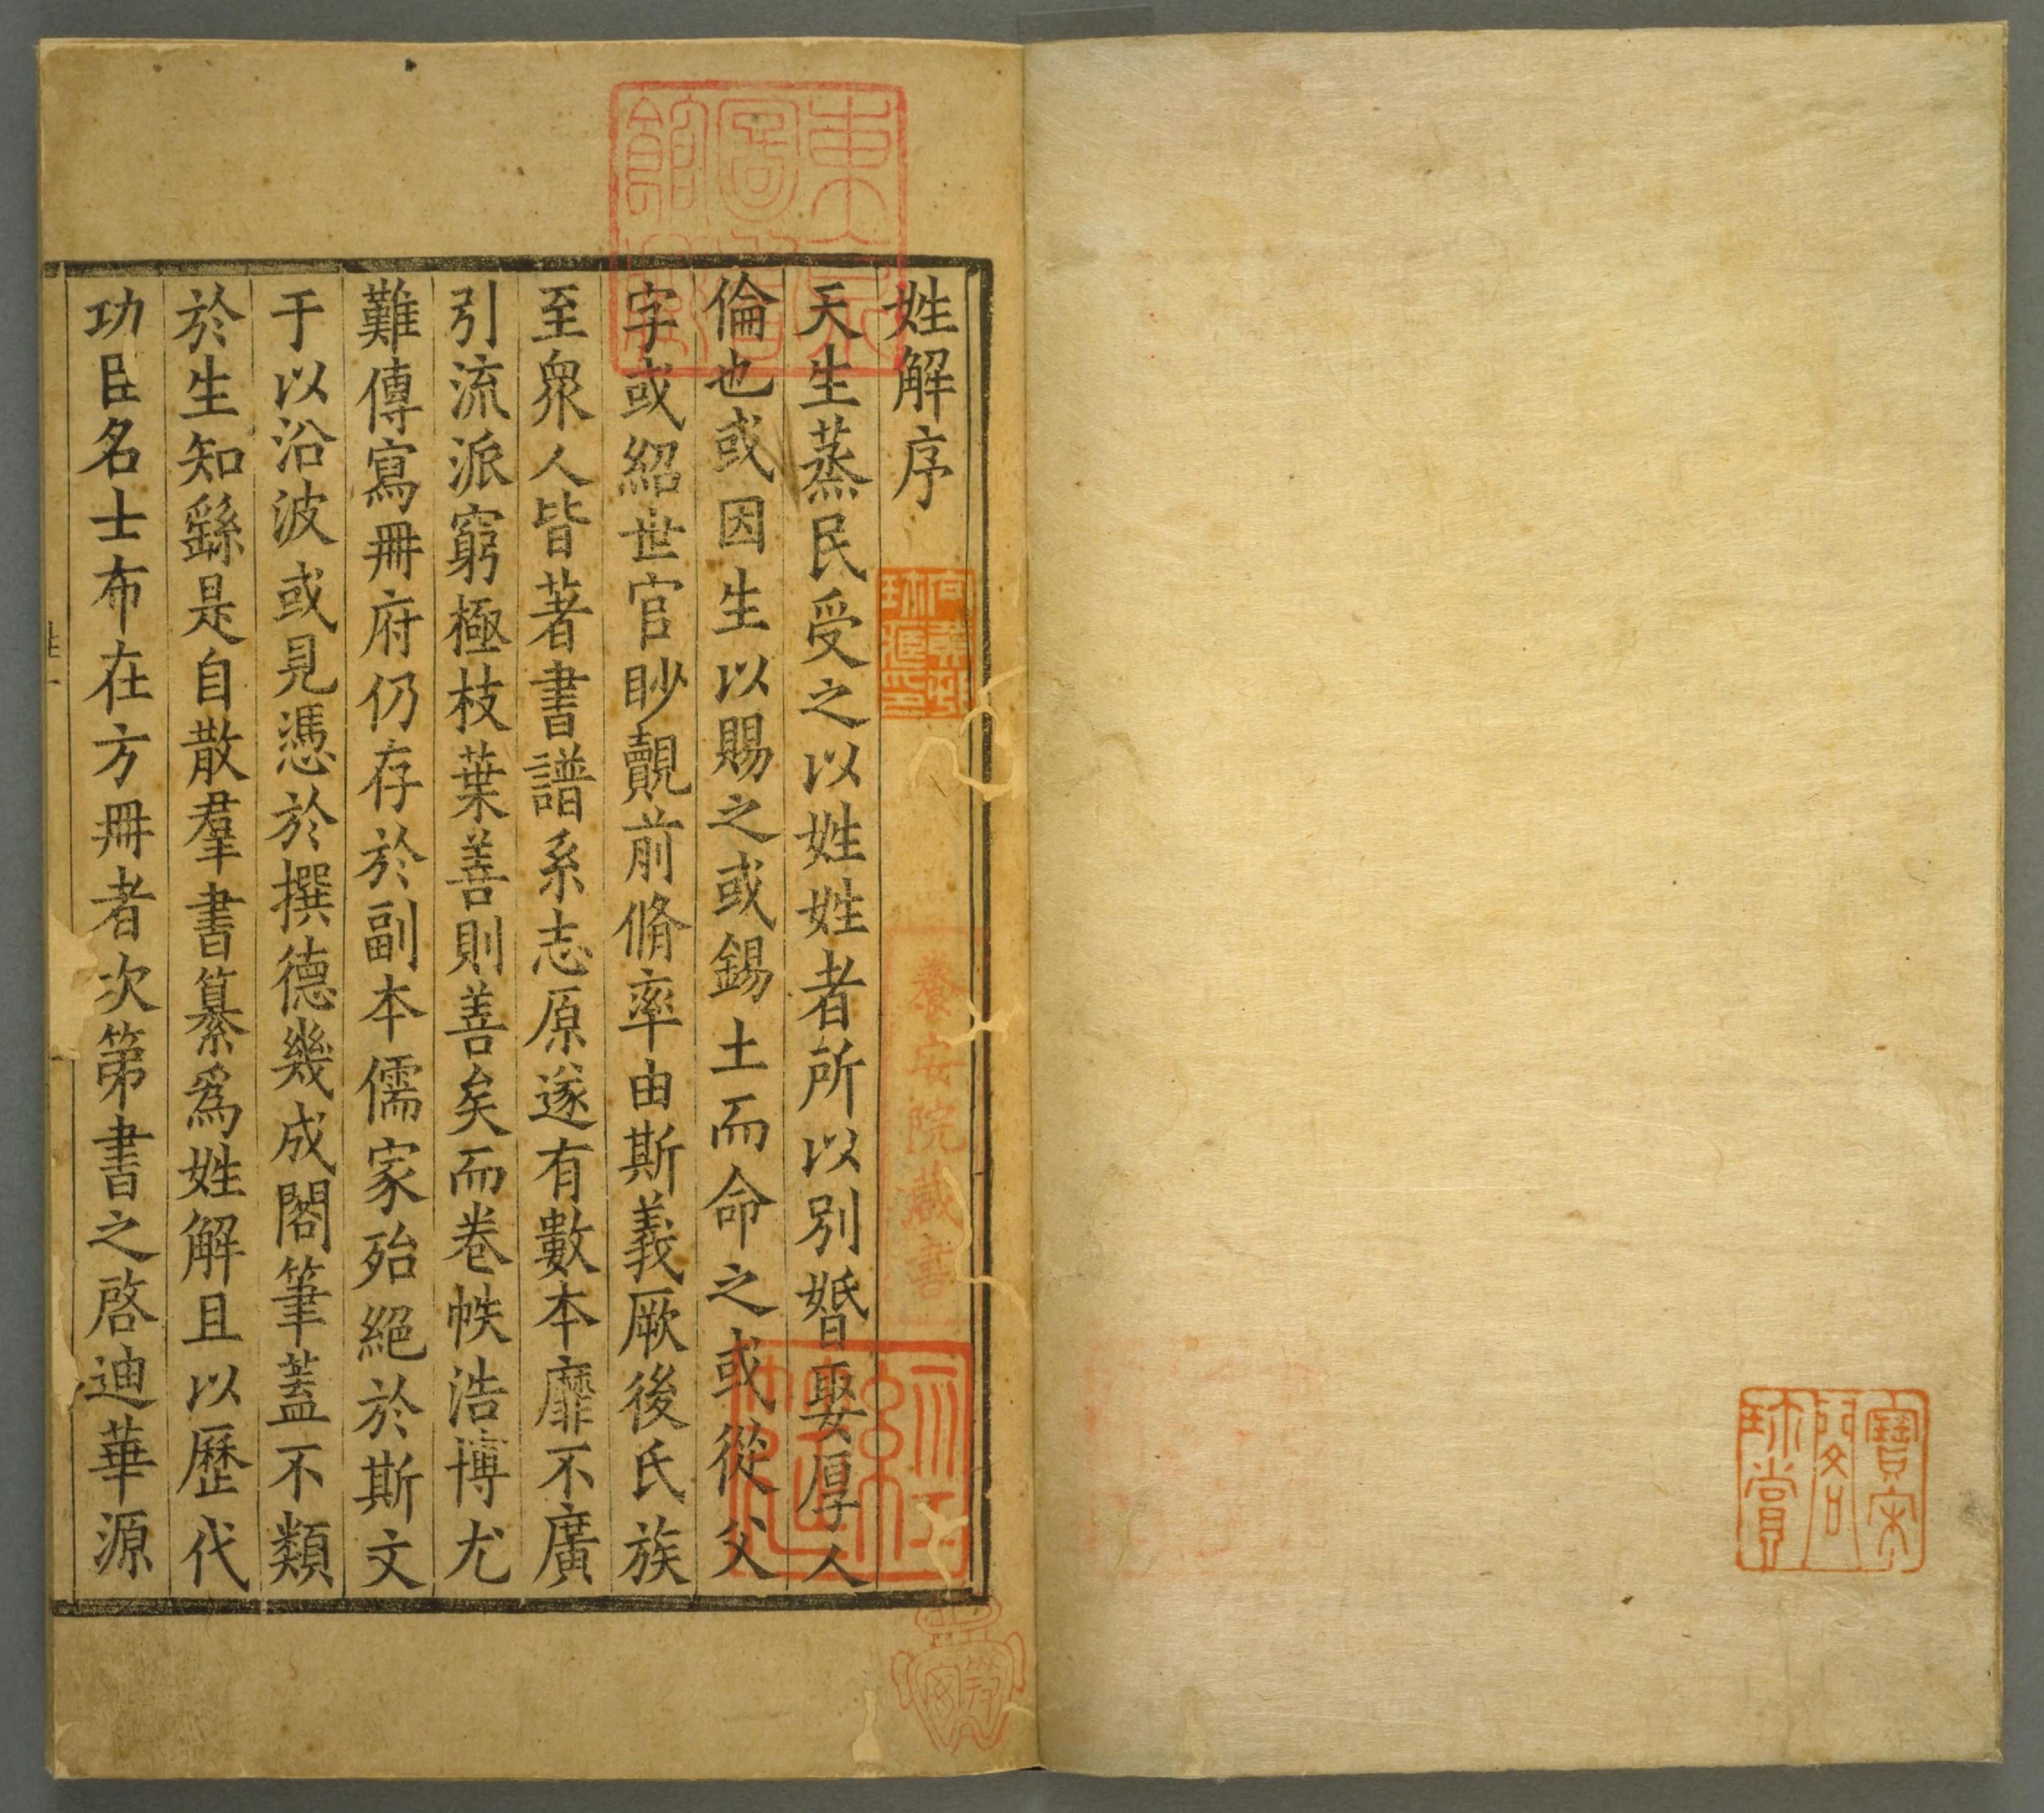 寶宋
閣
珎賞
姓解序
天生蒸民受之以姓姓者所以別婚娶厚人
倫也或因生以賜之或錫土而命之或從父
字或紹世官眇覿前脩率由斯義厥後氏族
至衆人皆著書譜系志原遂有數本靡不廣
引流派窮極枝葉善則善矣而卷帙浩博尤
難傳寫冊府仍存於副本儒家殆絕於斯文
于以沿波或見憑於撰德幾成閣筆蓋不類
於生知繇是自散羣書纂爲姓解且以歷代
功臣名士布在方冊者次第書之啓迪華源
養安院藏書
經筵